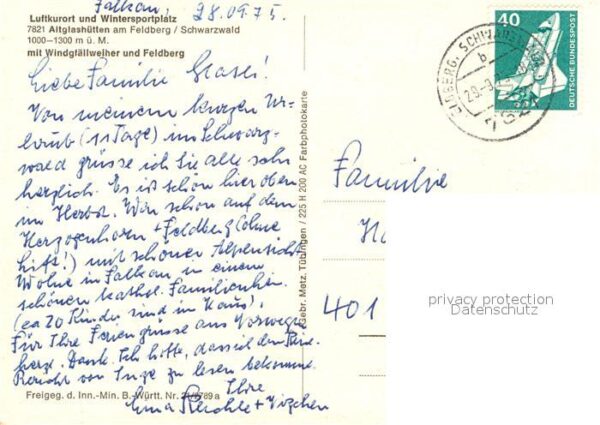 Falkau, 28.09.75.
Luftkurort und Wintersportplatz
7821 Altglashütten am Feldberg / Schwarzwald
1000–1300 m ü. M.
mit Windgfällweiher und Feldberg
Liebe Familie
Von meinem kurzen Ur-
laub (11 Tage) im Schwarz-
wald grüsse ich Sie alle sehr
herzlich. Es ist schön hier oben
im Herbst. War schon auf dem
Herzogenhorn + Feldberg (ohne
Lift!) mit schöner Alpensicht
Wohne in Falkau in einem
schönen kathol. Familienhm.
(ca 20 Kinder sind im Haus).
Für Ihre Feriengrüsse aus Norwegen
herzl. Dank. Ich hoffe, dass ich den
Bericht von Inge zu lesen bekomme.
Ihre
+
Freigeg. d. Inn.-Min. B.-Württ. Nr.
Gebr. Metz, Tübingen / 225 H 200 AC Farbphotokarte
40
DEUTSCHE BUNDESPOST
SCHWARZW
b
Familie
401
privacy protection
Datenschutz